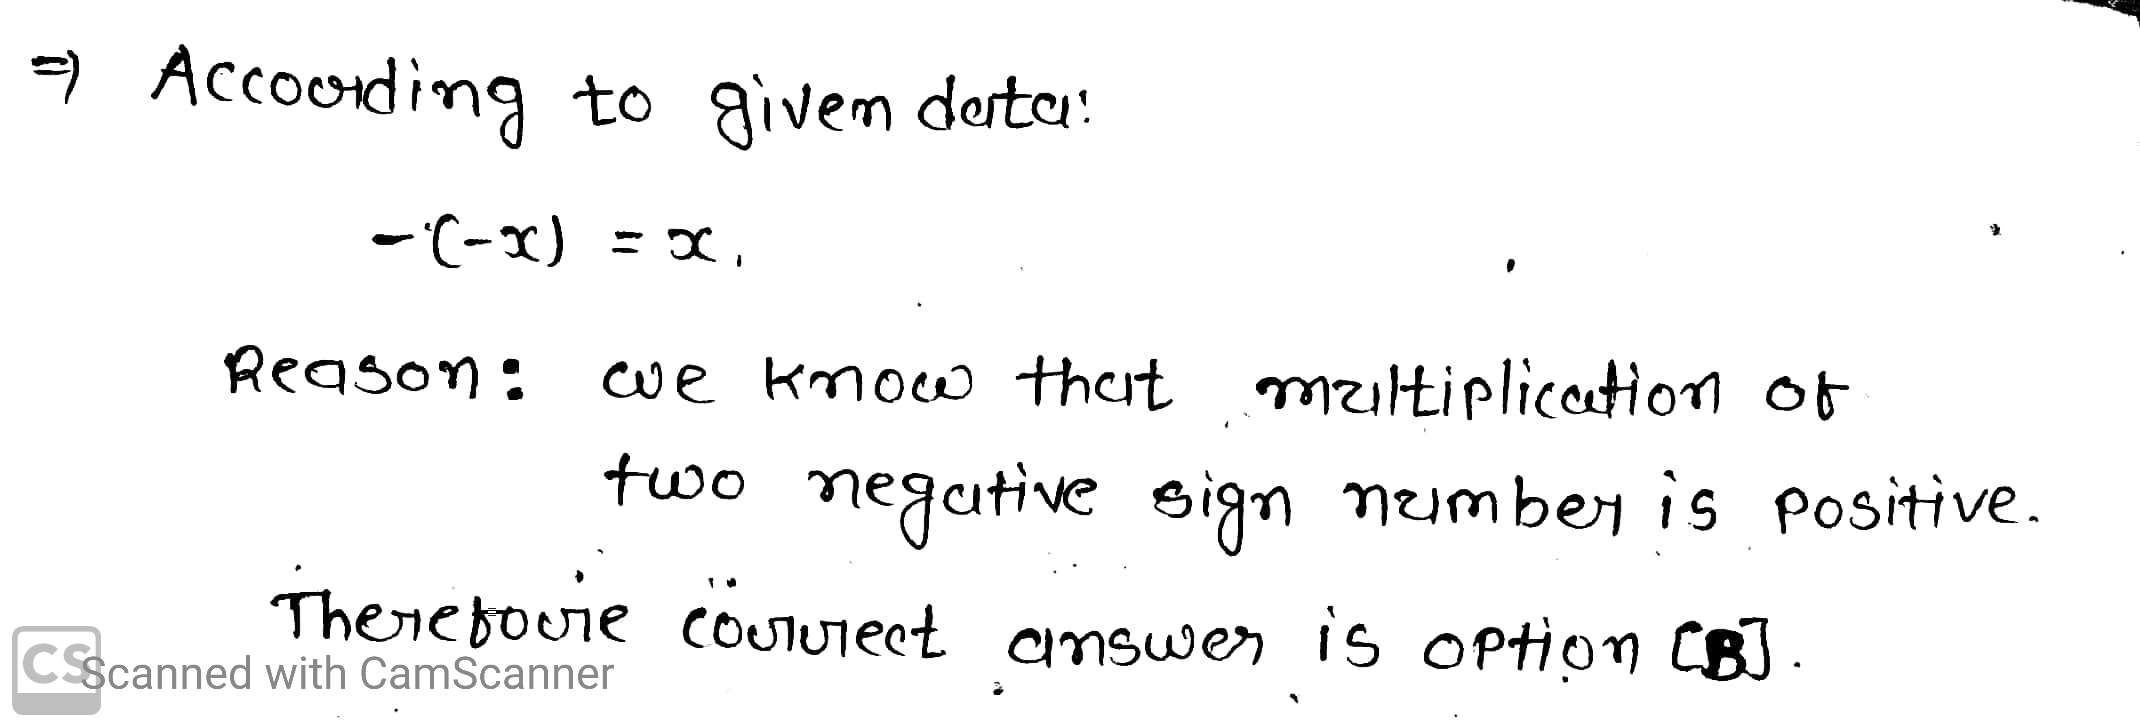 ⇒ According to given data:
-(-x) = x,
Reason: we know that multiplication of
two negative sign number is positive.
Therefore correct answer is option [B].
CS Scanned with CamScanner